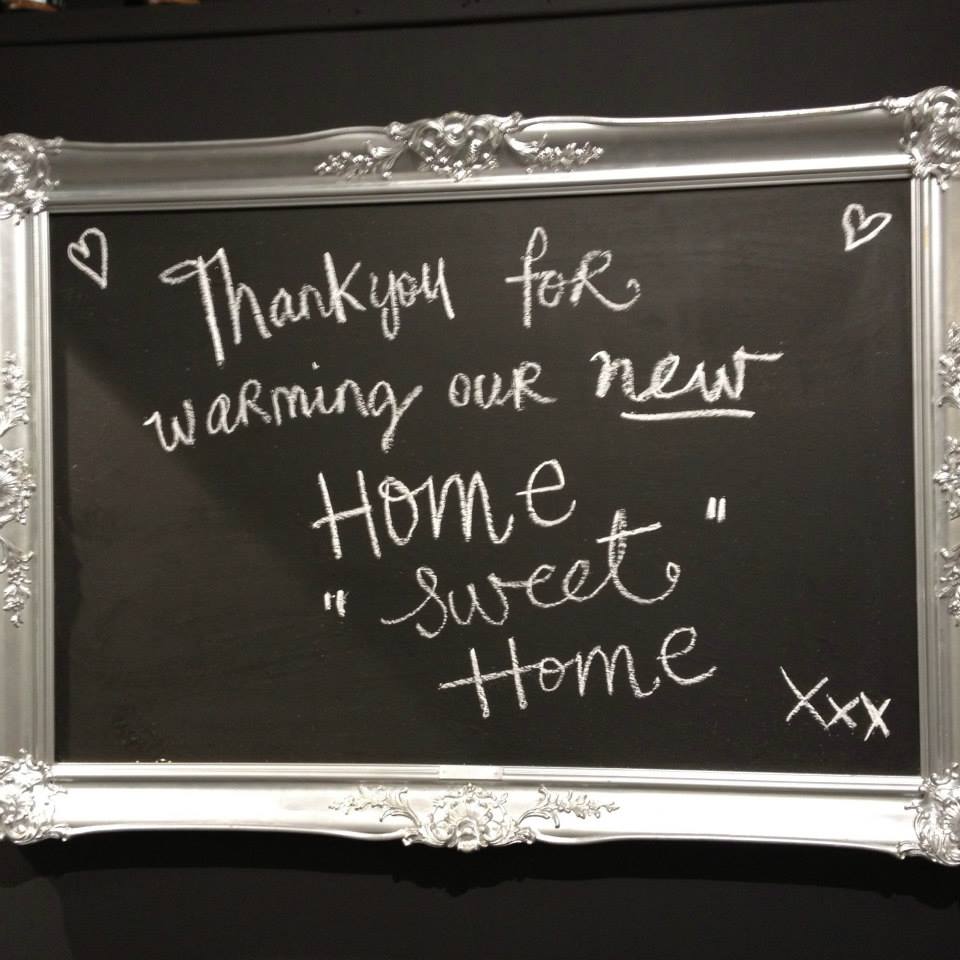 Thankyou for
warming our new
Home
"sweet"
Home
Xxx